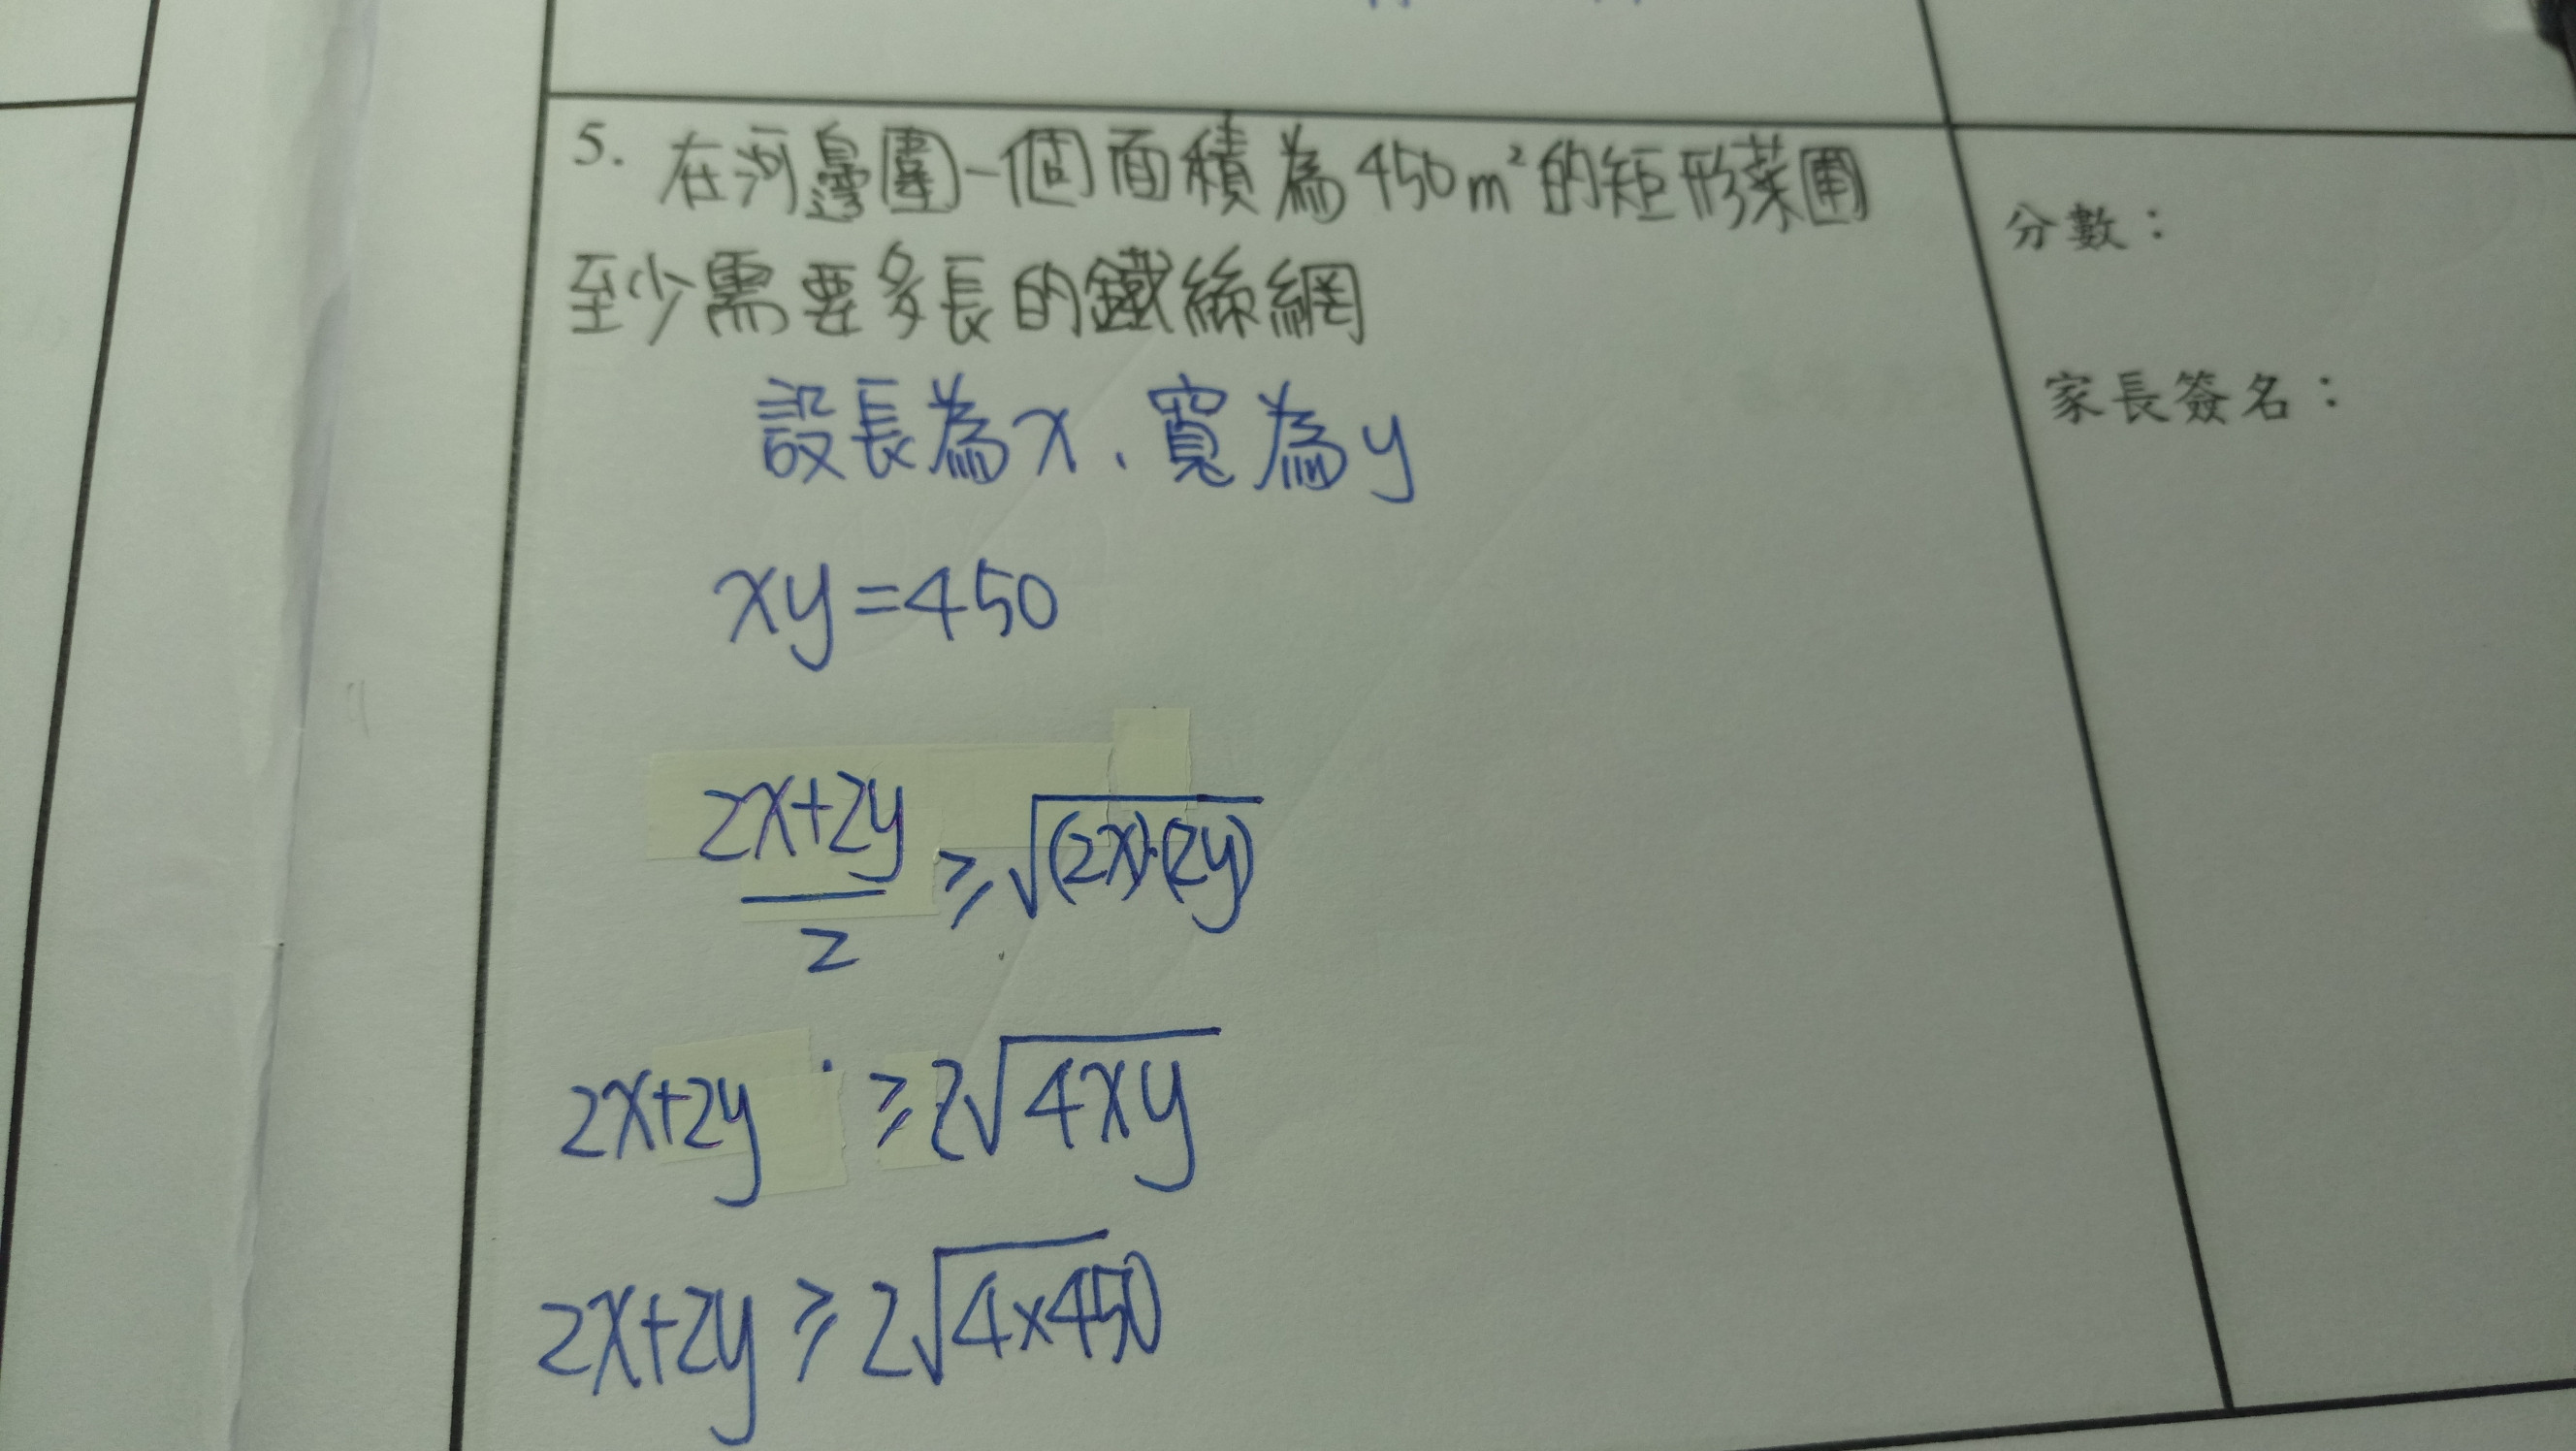 5. 在河邊圍一個面積為450m²的矩形菜圃
至少需要多長的鐵絲網
設長為x、寬為y
xy=450
(2x+2y)/2 ≥ √((2x)·(2y))
2x+2y ≥ 2√(4xy)
2x+2y ≥ 2√(4×450)
分數：
家長簽名：